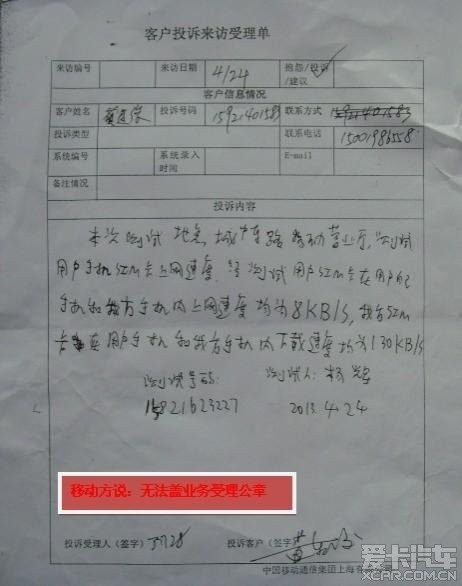 客户投诉来访受理单
来访编号 来访日期 4/24 抱怨/投诉/建议
客户信息情况
客户姓名 投诉号码 15921401583 联系方式 15921401583
投诉类型 联系电话 15001986558
系统编号 系统录入时间 E-mail
备注情况
投诉内容
本次测试 地点 移动营业厅,测试
用户手机SIM卡上网速度。经测试用户SIM卡在用户的
手机和我方手机内上网速度均为8KB/S,我方SIM
卡在用户手机和我方手机内下载速度均为130KB/S
测试号码: 测试人:杨
15821623227 2013.4.24
移动方说:无法盖业务受理公章
投诉受理人(签字) 投诉客户(签字)
中国移动通信集团上海有限公司
爱卡汽车
XCAR.COM.CN